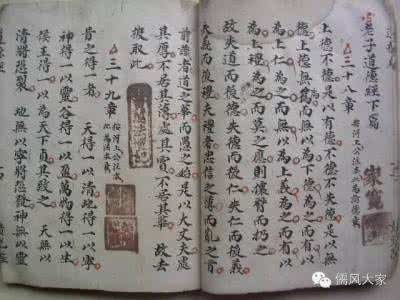 老子道德經下篇
三十八章 按河上公注本此為論德
上德不德是以有德下德不失德是以無
德上德無為而無以為下德為之而有以
為上仁為之而無以為上義為之而有以
為上禮為之而莫之應則攘臂而扔之
故失道而後德失德而後仁失仁而後義
失義而後禮夫禮者忠信之薄而亂之首
前識者道之華而愚之始是以大丈夫處
其厚不居其薄處其實不居其華 故去
彼取此
三十九章 按河上公注本此為法本
昔之得一者 天得一以清地得一以寧
神得一以靈谷得一以盈萬物得一以生
侯王得一以為天下貞其致之 天無以
清將恐裂 地無以寧將恐發神無以靈
儒风大家